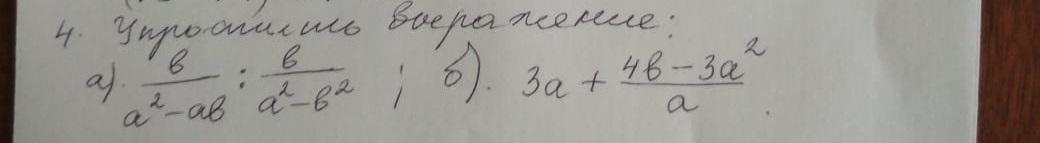 4. Упростить выражение:
а). в/(a²-aв) : в/(a²-в²) ; б). 3a + (4в-3a²)/a.